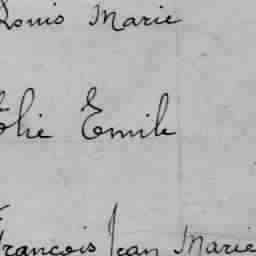 Louis Marie
Elie Emile
François Jean Marie